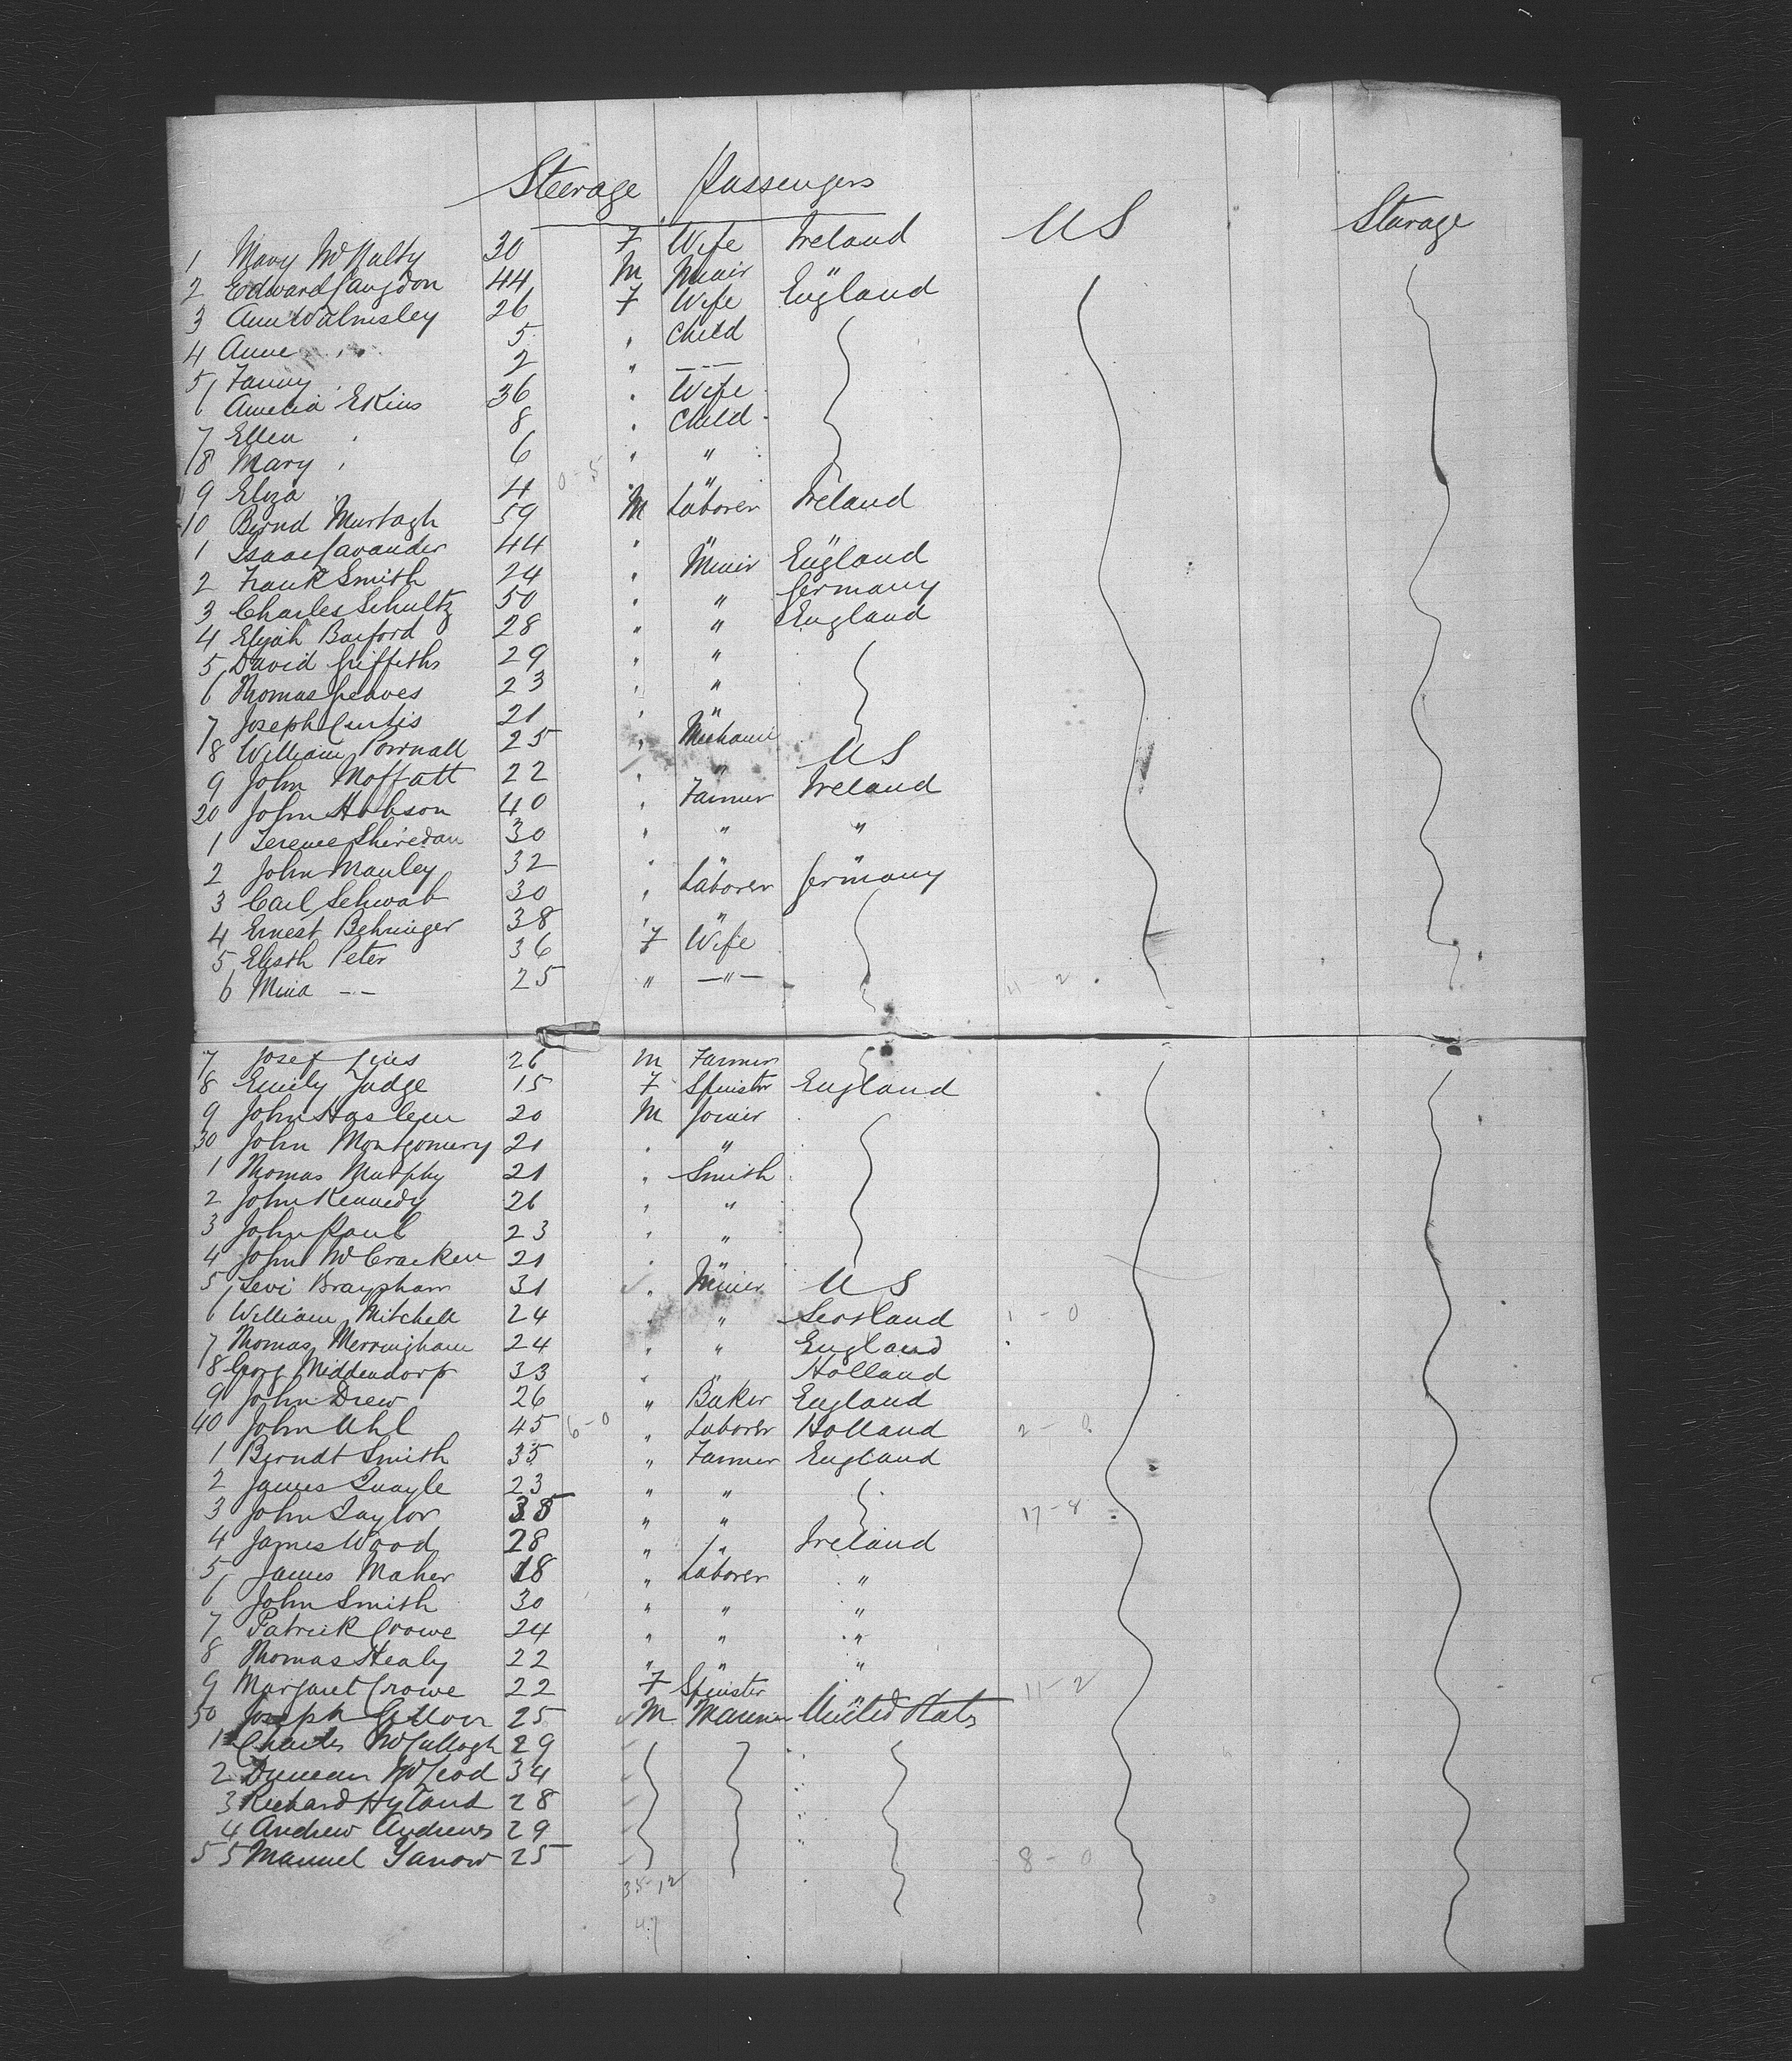 Steerage Passengers
1 Mary McNulty 30 F Wife Ireland US Sturage
2 Edward Langdon 44 M Minir "
3 Ann Walmsley 26 F Wife England
4 Anne " 5 " Child
5 Fanny " 2 " — —
6 Amelia Ekins 36 " Wife
7 Ellen " 8 " Child
8 Mary " 6 " "
9 Eliza 4 " "
10 Bernd Murtagh 59 M Laborer Ireland
1 Isaac Cavander 44 " " "
2 Frank Smith 24 " Minir England
3 Charles Schultz 50 " " Germany
4 Elijah Barford 28 " " England
5 David Griffiths 29 " "
6 Thomas Greaves 23 " "
7 Joseph Curtis 21 " "
8 William Pownall 25 " Mechanic
9 John Moffatt 22 " " US
20 John Hobson 40 " Farmer Ireland
1 Terence Shiredan 30 " " "
2 John Manley 32 " " "
3 Carl Schwab 30 " Laborer Germany
4 Ernest Behringer 38 " "
5 Elisth Peter 36 F Wife
6 Mina — — 25 " — " — 11 - 2
7 Josef 26 M Farmer
8 Emily Judge 15 F Spinster England
9 John Haslem 20 M Joiner
30 John Montgomery 21 " "
1 Thomas Murphy 21 " Smith
2 John Kennedy 26 " "
3 John Paul 23 " "
4 John McCracken 21 " "
5 Levi Braypham 31 " Minier US
6 William Mitchell 24 " " Scotland 1 - 0
7 Thomas Merringham 24 " " England
8 Georg Middendorp 33 " " Holland
9 John Drew 26 " Baker England
40 John Uhl 45 6-0 " Laborer Holland 2 - 0
1 Berndt Smith 35 " Farmer England
2 James Quayle 23 " "
3 John Taylor 35 " " 17-8
4 James Wood 28 " " Ireland
5 James Maher 18 " Laborer "
6 John Smith 30 " " "
7 Patrick Crowe 24 " " "
8 Thomas Healy 22 " " "
9 Margaret Crowe 22 F Spinster " 11-2
50 Joseph 25 M Mariner United Stats
1 Charles McCullogh 29
2 Duncan McLeod 34
3 Richard Hyland 28
4 Andrew Andrews 29
55 Manuel Yanow 25 8 - 0
35-12
47